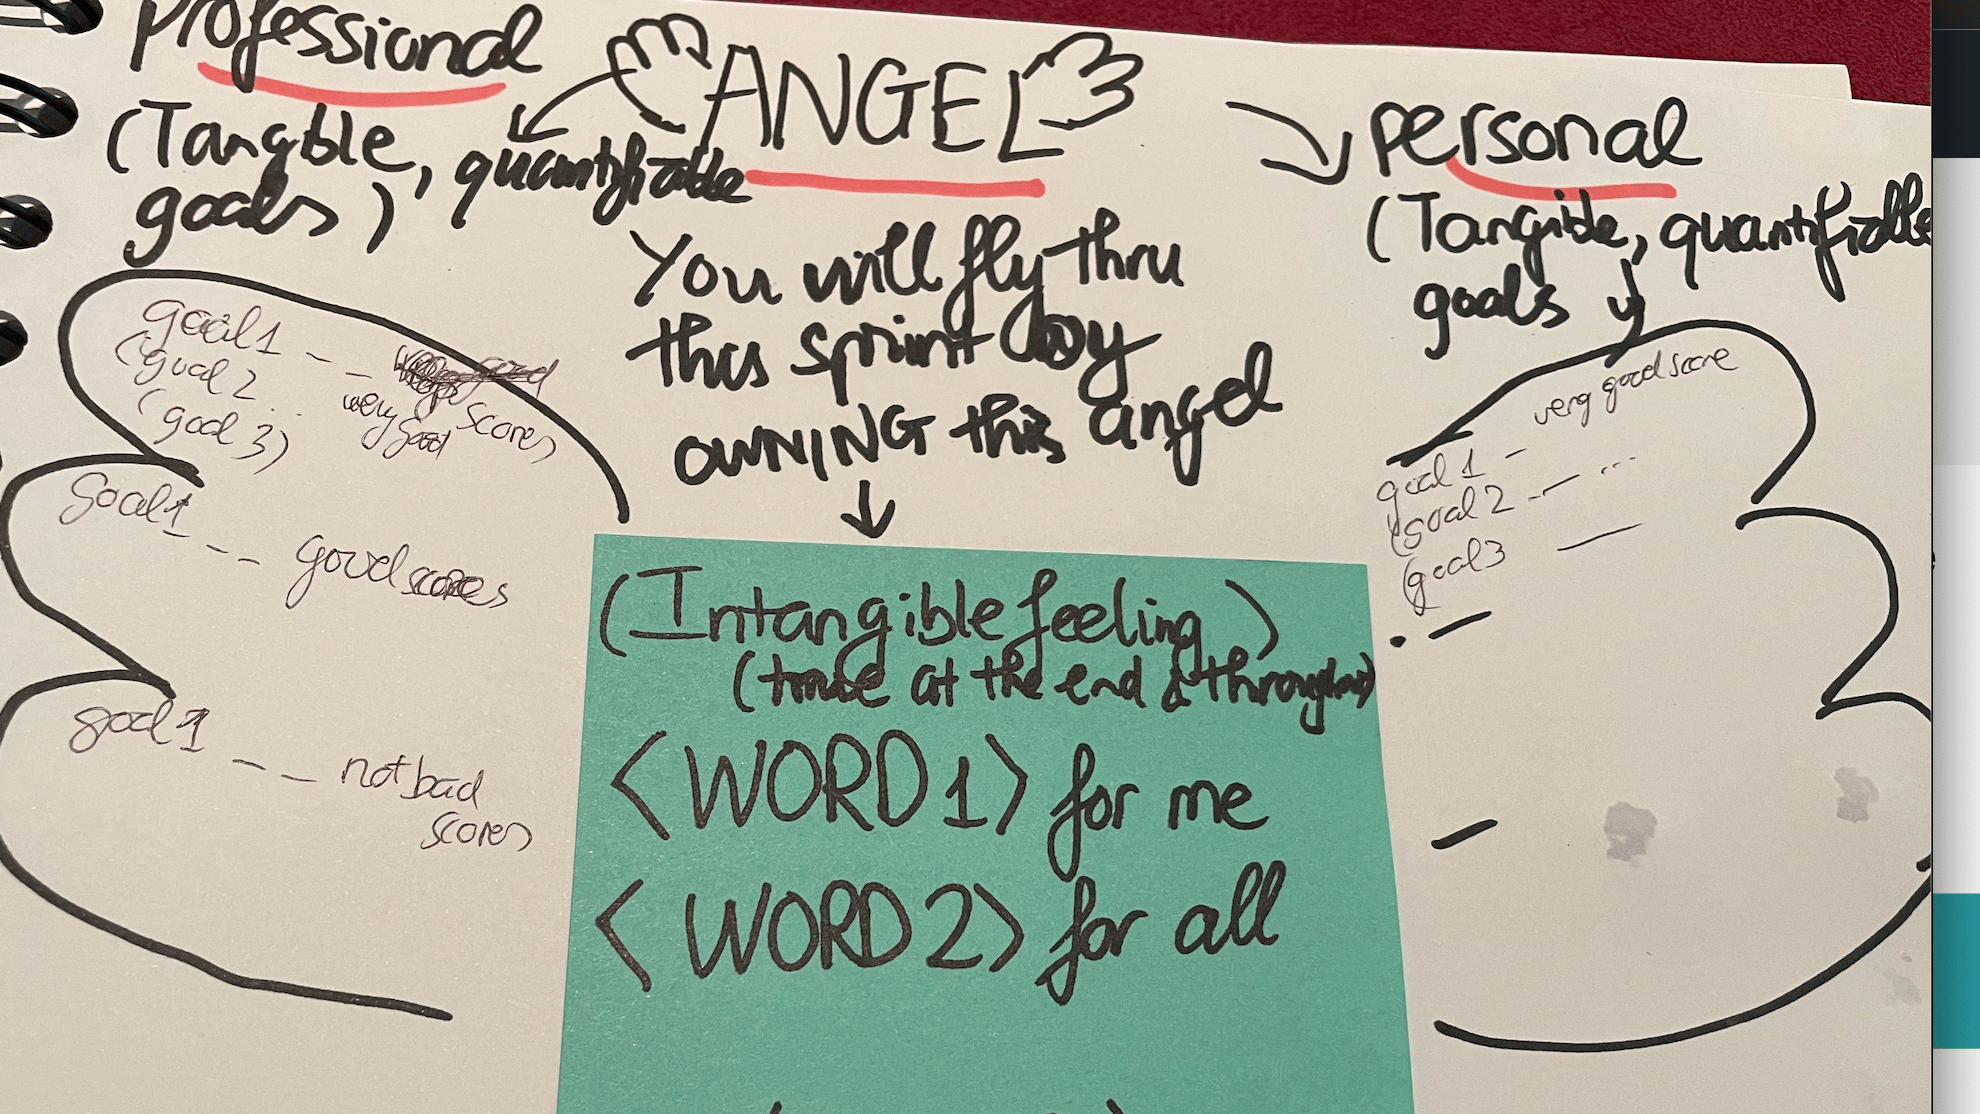 Professional
(Tangible, quantifiable
goals)
ANGEL
personal
(Tangible, quantifiable
goals
You will fly thru
this sprint by
OWNING this angel
goal 1 - - very good scores
(goal 2 ...
(goal 3)
Goal 1 - - - good scores
goal 1 - - - not bad
scores
(Intangible feeling)
(true at the end & throughout)
<WORD 1> for me
<WORD 2> for all
very good score
goal 1 -
(goal 2 - - ...
(goal 3 —